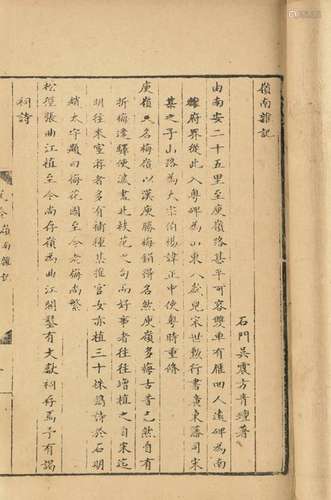 嶺南雜記
石門吳震方青壇著
由南安二十五里至庾嶺路甚平可容雙車有雁回人遠碑為南
雄府界從此入粵碑為山東八歲兒宋世勳行書廣東藩司宋
某之子山路為大宗伯楊諱正中使粵時重修
庾嶺又名梅嶺以漢庾勝梅鋗得名然庾嶺多梅古昔已然自有
折梅逢驛使 此枝花之句而好事者往往增植之自宋迄
明往來宦 者多有補種某推官女亦植三十株為詩於石明
趙太守題曰梅花國至今老梅尚繁
松徑張曲江植至今尚存嶺為曲江開鑿有文獻祠存焉予有謁
祠詩
嶺南雜記